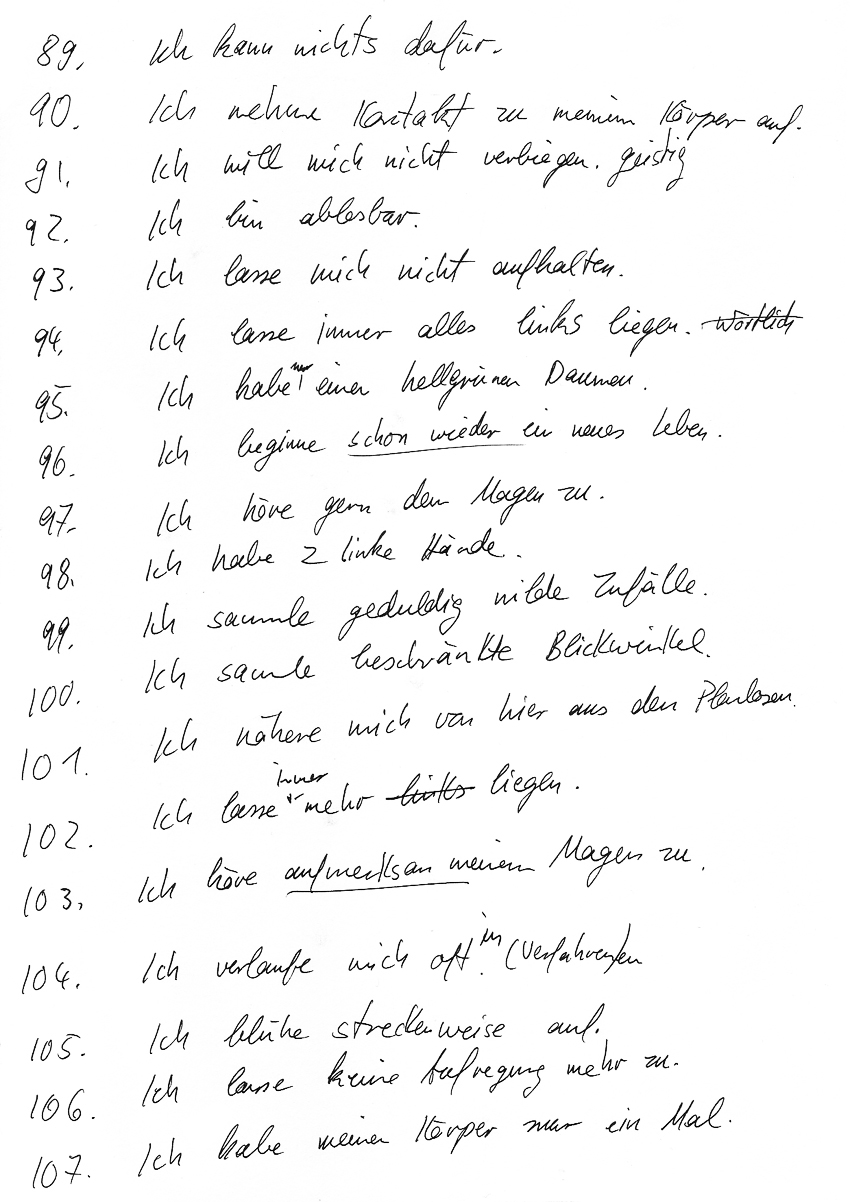 89. Ich kann nichts dafür.
90. Ich nehme Kontakt zu meinem Körper auf.
91. Ich will mich nicht verbiegen. geistig
92. Ich bin ablesbar.
93. Ich lasse mich nicht aufhalten.
94. Ich lasse immer alles links liegen. wörtlich
95. Ich habe nur einen hellgrünen Daumen.
96. Ich beginne schon wieder ein neues Leben.
97. Ich höre gern dem Magen zu.
98. Ich habe 2 linke Hände.
99. Ich sammle geduldig wilde Zufälle.
100. Ich samle beschränkte Blickwinkel.
101. Ich nähere mich von hier aus den Planlosen.
102. Ich lasse immer mehr links liegen.
103. Ich höre aufmerksam meinem Magen zu.
104. Ich verlaufe mich oft. in (Verfahren)en
105. Ich blühe streckenweise auf.
106. Ich lasse keine Aufregung mehr zu.
107. Ich habe meinen Körper nur ein Mal.